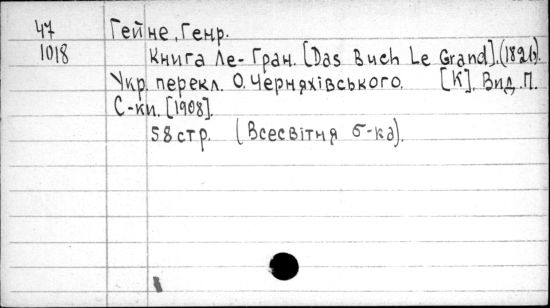 47 Гейне, Генр.
1018 Книга Ле-Гран. [Das Buch Le Grand].(1826).
Укр. перекл. О. Черняхівського. [К]. Вид. П.
С-ки. [1908].
58 стр. (Всесвітня б-ка).